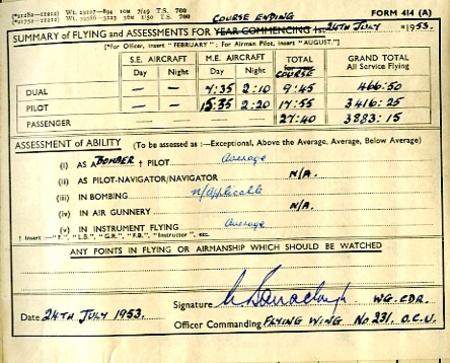 COURSE ENDING
FORM 414 (A)
SUMMARY of FLYING and ASSESSMENTS FOR YEAR COMMENCING 1st 24TH JULY 1953.
[*For Officer, insert "FEBRUARY"; For Airman Pilot, insert "AUGUST."]
S.E. AIRCRAFT M.E. AIRCRAFT TOTAL GRAND TOTAL
Day Night Day Night for year COURSE All Service Flying
DUAL — — 7:35 2:10 9:45 466:50
PILOT — — 15:35 2:20 17:55 3416:25
PASSENGER 27:40 3883:15
ASSESSMENT of ABILITY (To be assessed as :—Exceptional, Above the Average, Average, Below Average)
(i) AS A BOMBER † PILOT Average
(ii) AS PILOT-NAVIGATOR/NAVIGATOR N/A.
(iii) IN BOMBING n/applicable
(iv) IN AIR GUNNERY N/A.
(v) IN INSTRUMENT FLYING Average
† Insert :—"F.", "L.B.", "G.R.", "F.B.", "Instructor", etc.
ANY POINTS IN FLYING OR AIRMANSHIP WHICH SHOULD BE WATCHED
Signature WG. CDR.
Date 24TH JULY 1953. Officer Commanding FLYING WING No. 231. O.C.U.